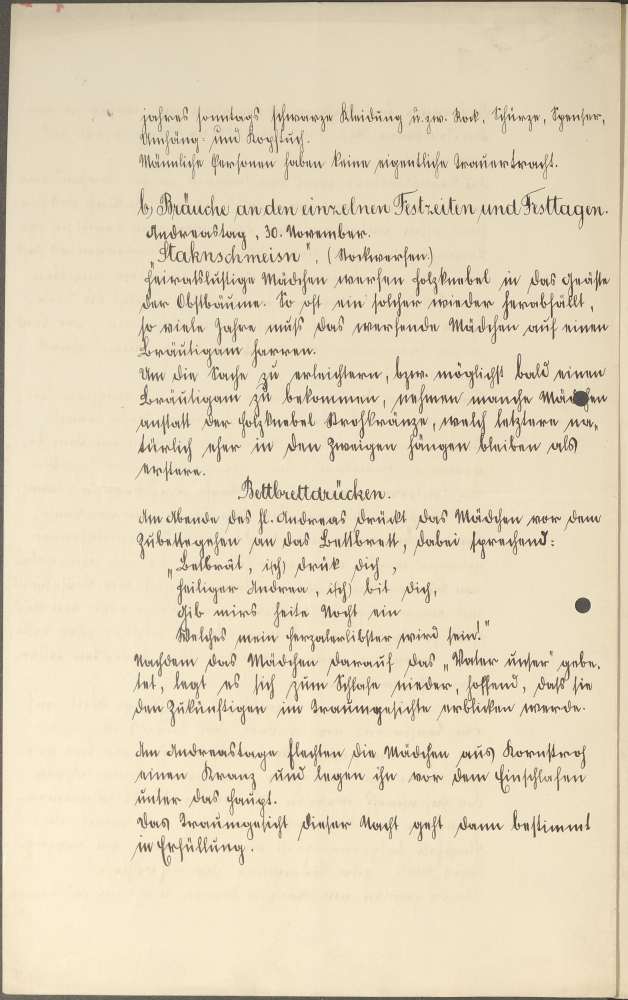 jahres sonntags schwarze Kleidung u. zw. Rock, Schürze, Spenser,
Umhäng- und Kopftuch.
Männliche Personen haben keine eigentliche Trauertracht.
b) Bräuche an den einzelnen Festzeiten und Festtagen.
Andreastag, 30. November.
„Staknschmeisn", (Stockwerfen.)
Heiratslustige Mädchen werfen Holzknebel in das Geäste
der Obstbäume. So oft ein solcher wieder herabfällt,
so viele Jahre muß das werfende Mädchen auf einen
Bräutigam harren.
Um die Sache zu erleichtern, bzw. möglichst bald einen
Bräutigam zu bekommen, nehmen manche Mädchen
anstatt der Holzknebel Strohkränze, welch letztere na-
türlich eher in den Zweigen hängen bleiben als
erstere.
Bettbrettdrücken.
Am Abende des hl. Andreas drückt das Mädchen vor dem
Zubettegehen an das Bettbrett, dabei sprechend:
„Betbrät, i(ch) drük dich,
Heiliger Andrea, i(ch) bit dich,
Gib mirs heite Nocht ein
Welches mein Herzalerlibster wird sein!"
Nachdem das Mädchen darauf das „Vater unser" gebe-
tet, legt es sich zum Schlafe nieder, hoffend, daß sie
den Zukünftigen im Traumgesichte erblicken werde.
Am Andreastage flechten die Mädchen aus Kornstroh
einen Kranz und legen ihn vor dem Einschlafen
unter das Haupt.
Das Traumgesicht dieser Nacht geht dann bestimmt
in Erfüllung.